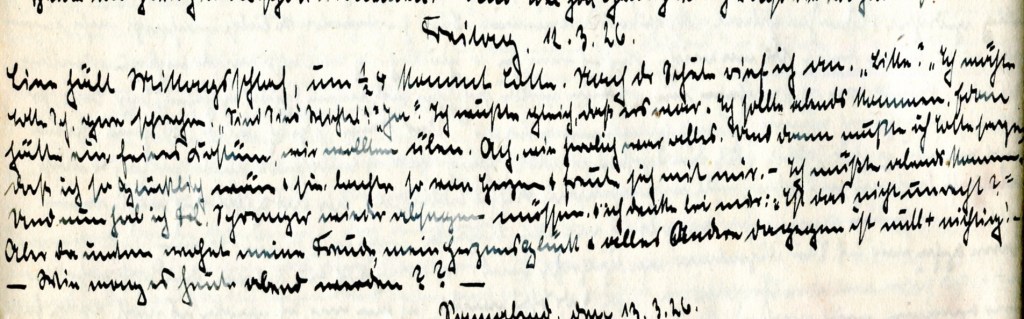 Freitag, 12.3.26.
Line hält Mittagsschlaf, um ½ 4 kommt Lotte. Nach der Schule rief ich an. „Bitte?" „Ich möchte
Lotte Sch. gern sprechen." „Sind Sie's Achtel?" „Ja." Ich wußte gleich, daß Er's war. Ich sollte abends kommen,
hätte ein feines Kostüm, wir wollten üben. Ach, wie herrlich war alles. Und dann mußte ich Lotte sagen
daß ich so glücklich wäre & sie lachte so von Herzen & freute sich mit mir. – Ich mußte abends kommen.
Und nun hab ich Frl. Sprenger wieder absagen müssen. & ich denke bei mir: „Ist das nicht unrecht?" –
Aber da unten wohnt meine Freude, mein Herzensglück & alles Andere dagegen ist null + nichtig! –
– Wie mag es heute abend werden ? ? –
Sonnabend, den 13.3.26.